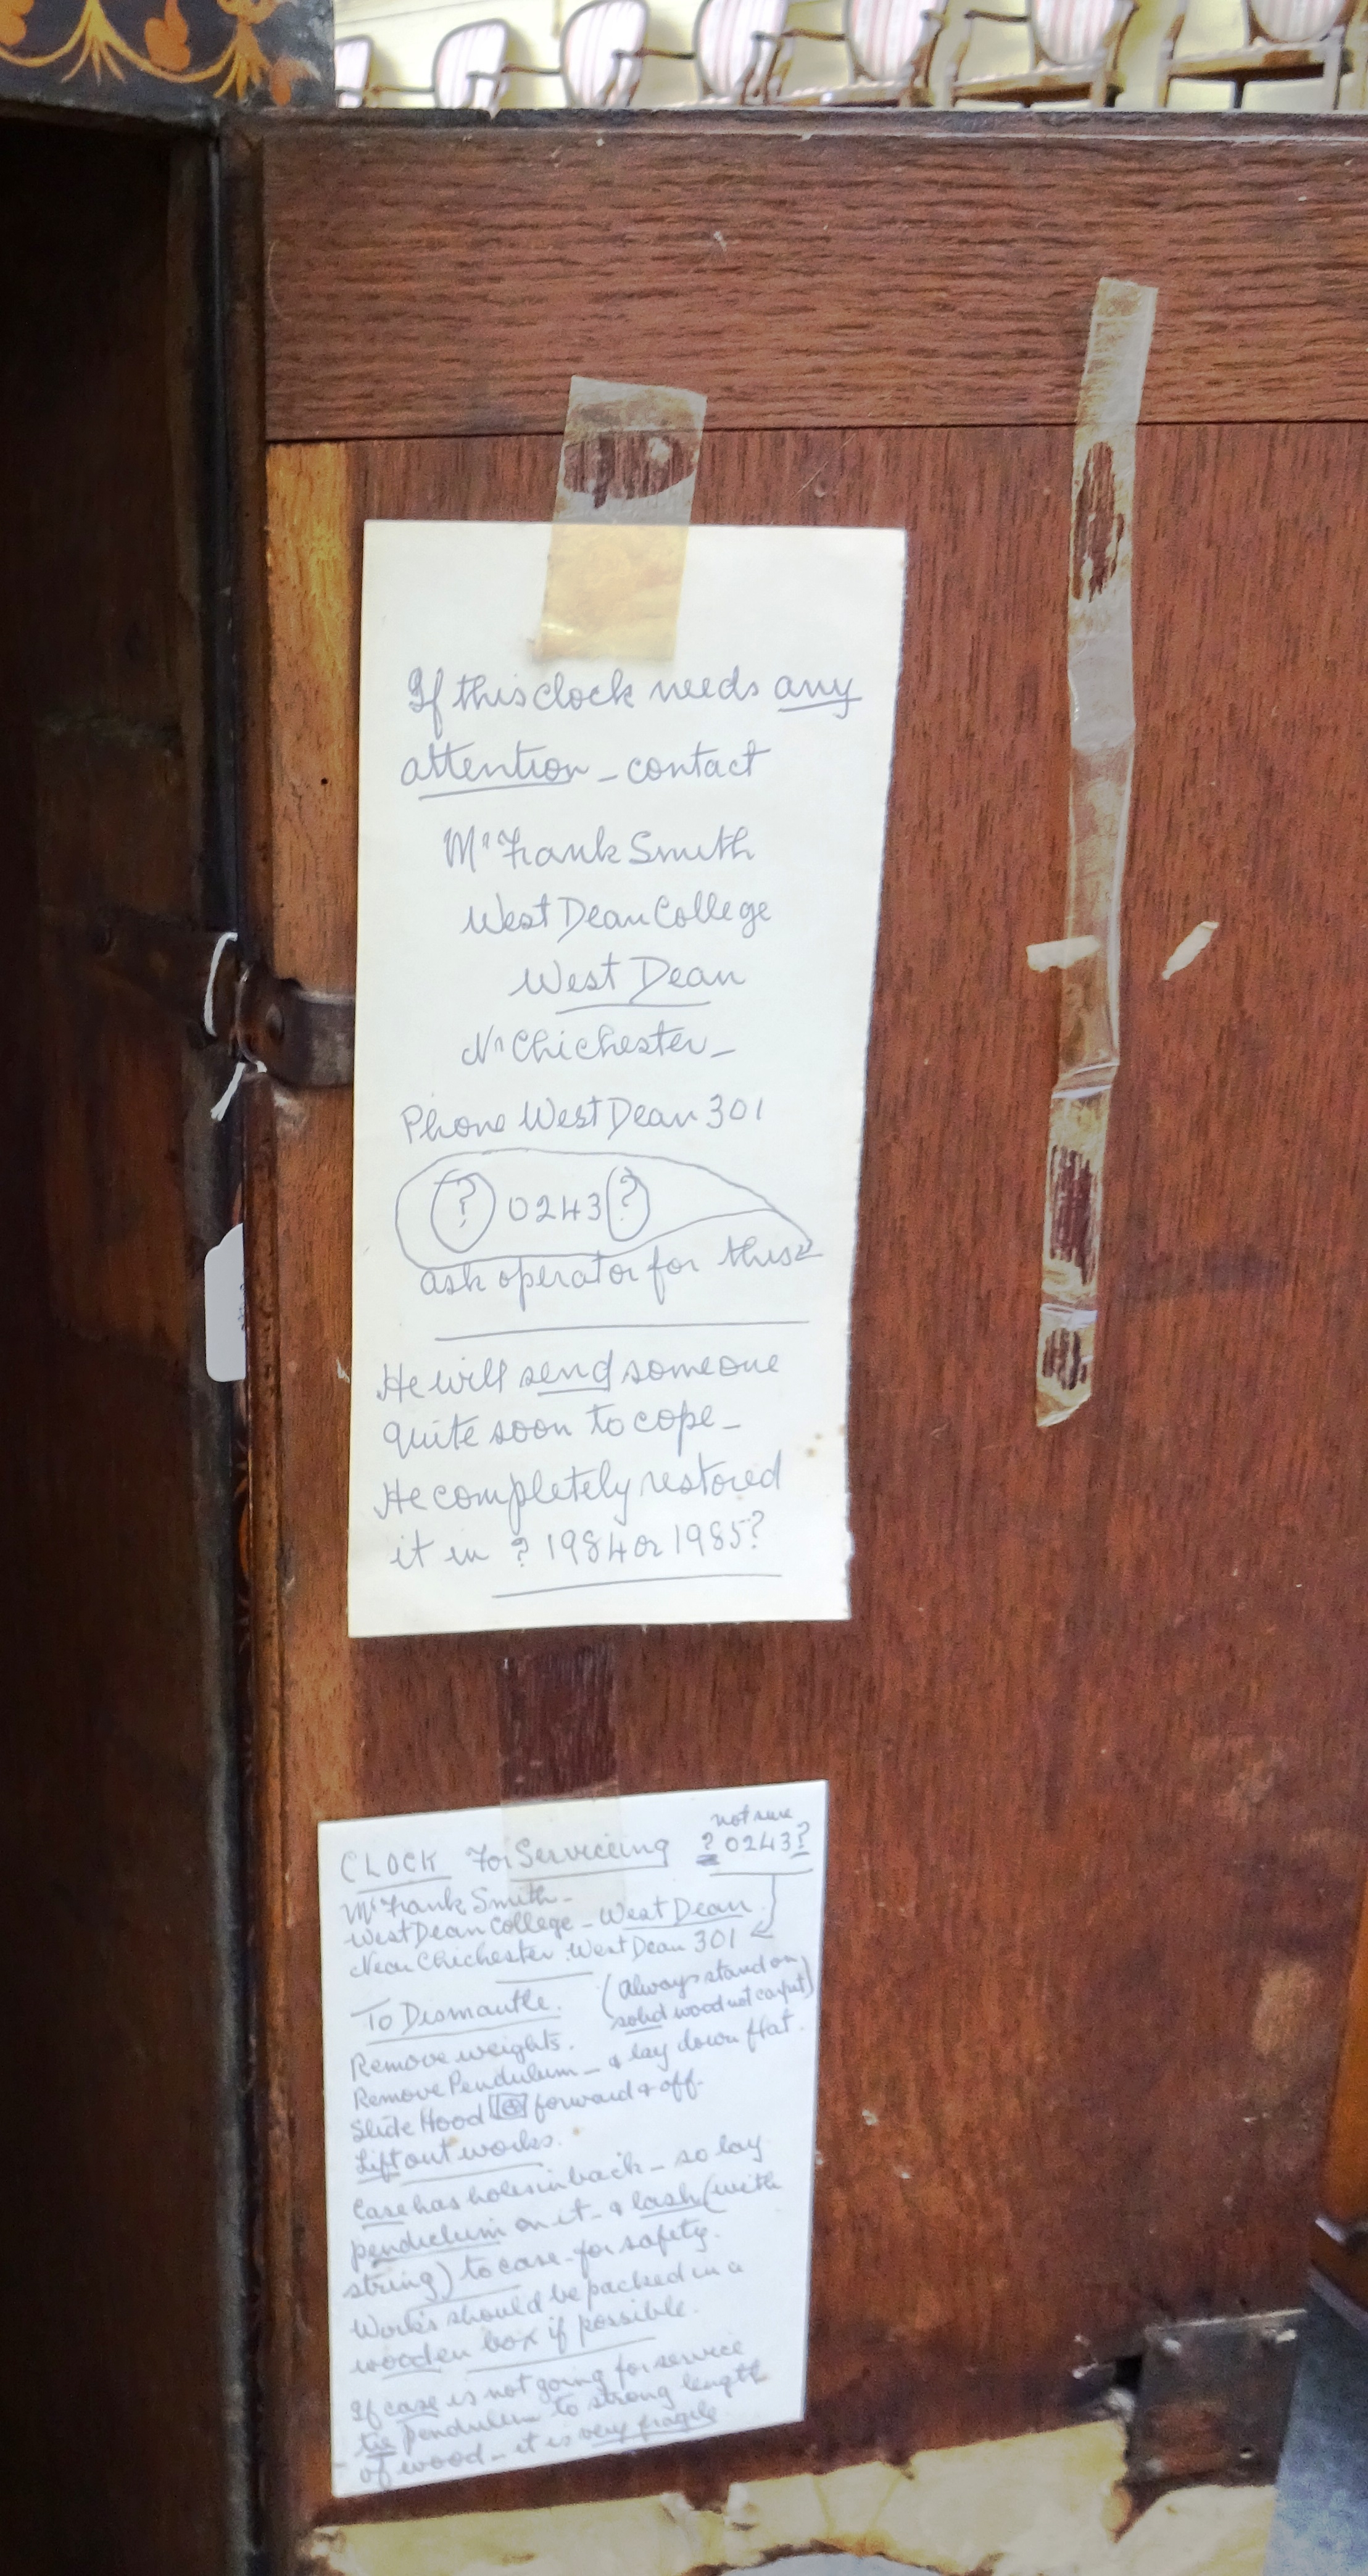 If this clock needs any
attention - contact
Mr Frank Smith
West Dean College
West Dean
Nr Chichester -
Phone West Dean 301
? 0243 ?
ask operator for this
He will send someone
quite soon to cope -
He completely restored
it in ? 1984 or 1985?
not sure
CLOCK For Servicing ? 0243?
Mr Frank Smith -
West Dean College - West Dean
Near Chichester. West Dean 301
(Always stand on
solid wood not carpet)
To Dismantle.
Remove weights.
Remove Pendulum - & lay down flat.
Slide Hood forward & off.
Lift out works.
Case has holes in back - so lay
pendulum on it - & lash (with
string) to case - for safety.
Works should be packed in a
wooden box if possible.
If case is not going for service
tie pendulum to strong length
of wood - it is very fragile